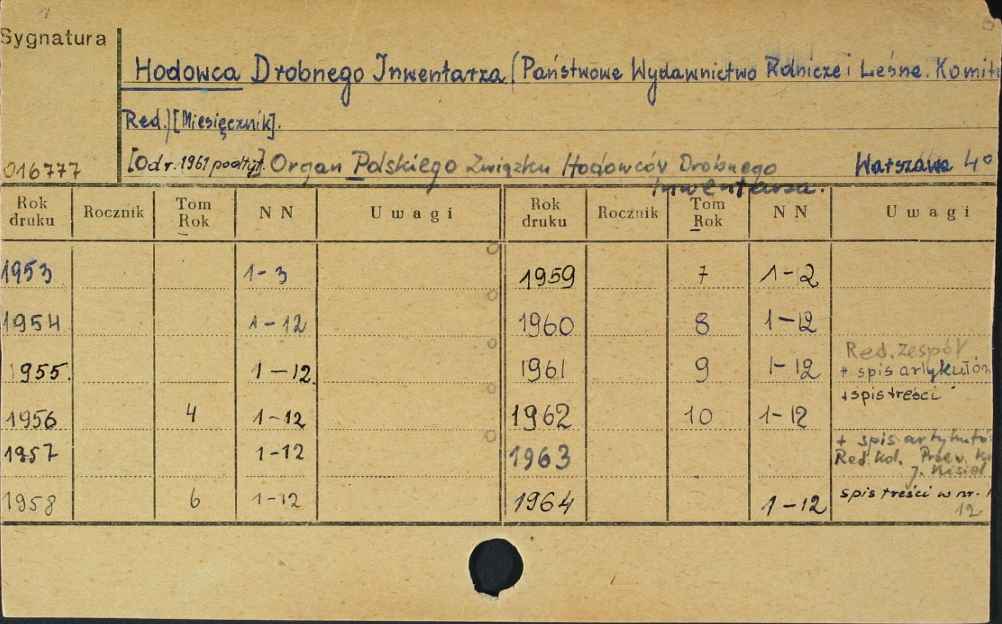 Sygnatura
Hodowca Drobnego Inwentarza (Państwowe Wydawnictwo Rolnicze i Leśne. Komit
Red.) [Miesięcznik].
016777 [Od r. 1961 podtyt]. Organ Polskiego Związku Hodowców Drobnego Inwentarza. Warszawa 4°
Rok druku Rocznik Tom Rok N N Uwagi Rok druku Rocznik Tom Rok N N Uwagi
1953 1-3 1959 7 1-2
1954 1-12 1960 8 1-12
1955. 1-12. 1961 9 1-12 Red. zespół + spis artykułów
+ spis treści
1956 4 1-12 1962 10 1-12
1957 1-12 1963 + spis artykułó Red. kol. Przew.
J.
1958 6 1-12 1964 1-12 spis treści w nr. 12